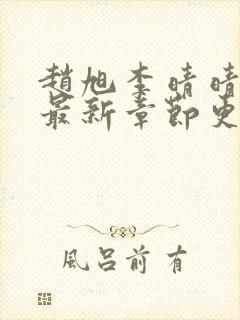 趙旭李晴晴
最新章節更
風呂前有